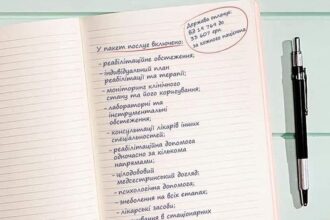 У пакет послуг включено:
- реабілітаційне обстеження;
- індивідуальний план
реабілітації та терапії;
- моніторинг клінічного
стану та його коригування;
- лабораторні та
інструментальні
обстеження;
- консультації лікарів інших
спеціальностей;
- реабілітаційна допомога
одночасно за кількома
напрямами;
- цілодобовий
медсестринський догляд;
- психологічна допомога;
- знеболення на всіх етапах;
- лікарські засоби;
в стаціонарних
Держава оплачує:
від 19 769 до
33 607 грн
за кожного пацієнта